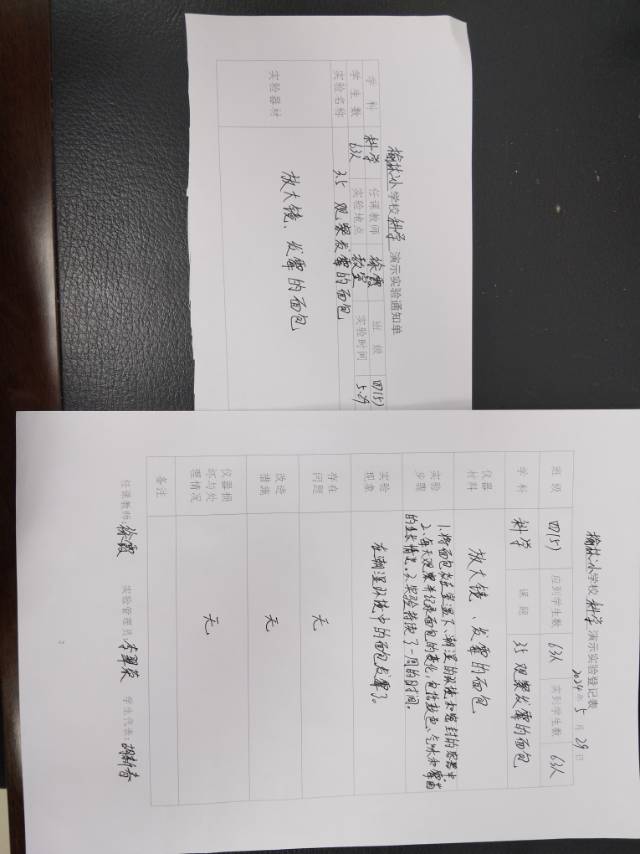 榆林小学校科学演示实验通知单
学 科 科学 任课教师 徐霞 班 级 四(5)
学 生 数 63人 实验地点 教室 实验时间 5.29
实验名称 3.5 观察发霉的面包
实验器材 放大镜、发霉的面包
榆林小学校科学演示实验登记表
2024年 5 月 29 日
班 级 四(5) 应到学生数 63人 实到学生数 63人
学 科 科学 课 题 3.5 观察发霉的面包
仪器材料 放大镜、发霉的面包
实验步骤 1.将面包放在室温下、潮湿的
2.每天观察并记录面包的变化,包括颜色、气味和霉菌
的生长情况。3.实验持续了一周的时间。
实验现象 在潮湿环境中的面包发霉了。
存在问题 无
改进措施 无
仪器损坏与处理情况 无
备注
任课教师:徐霞 实验管理员:李 学生代表:胡